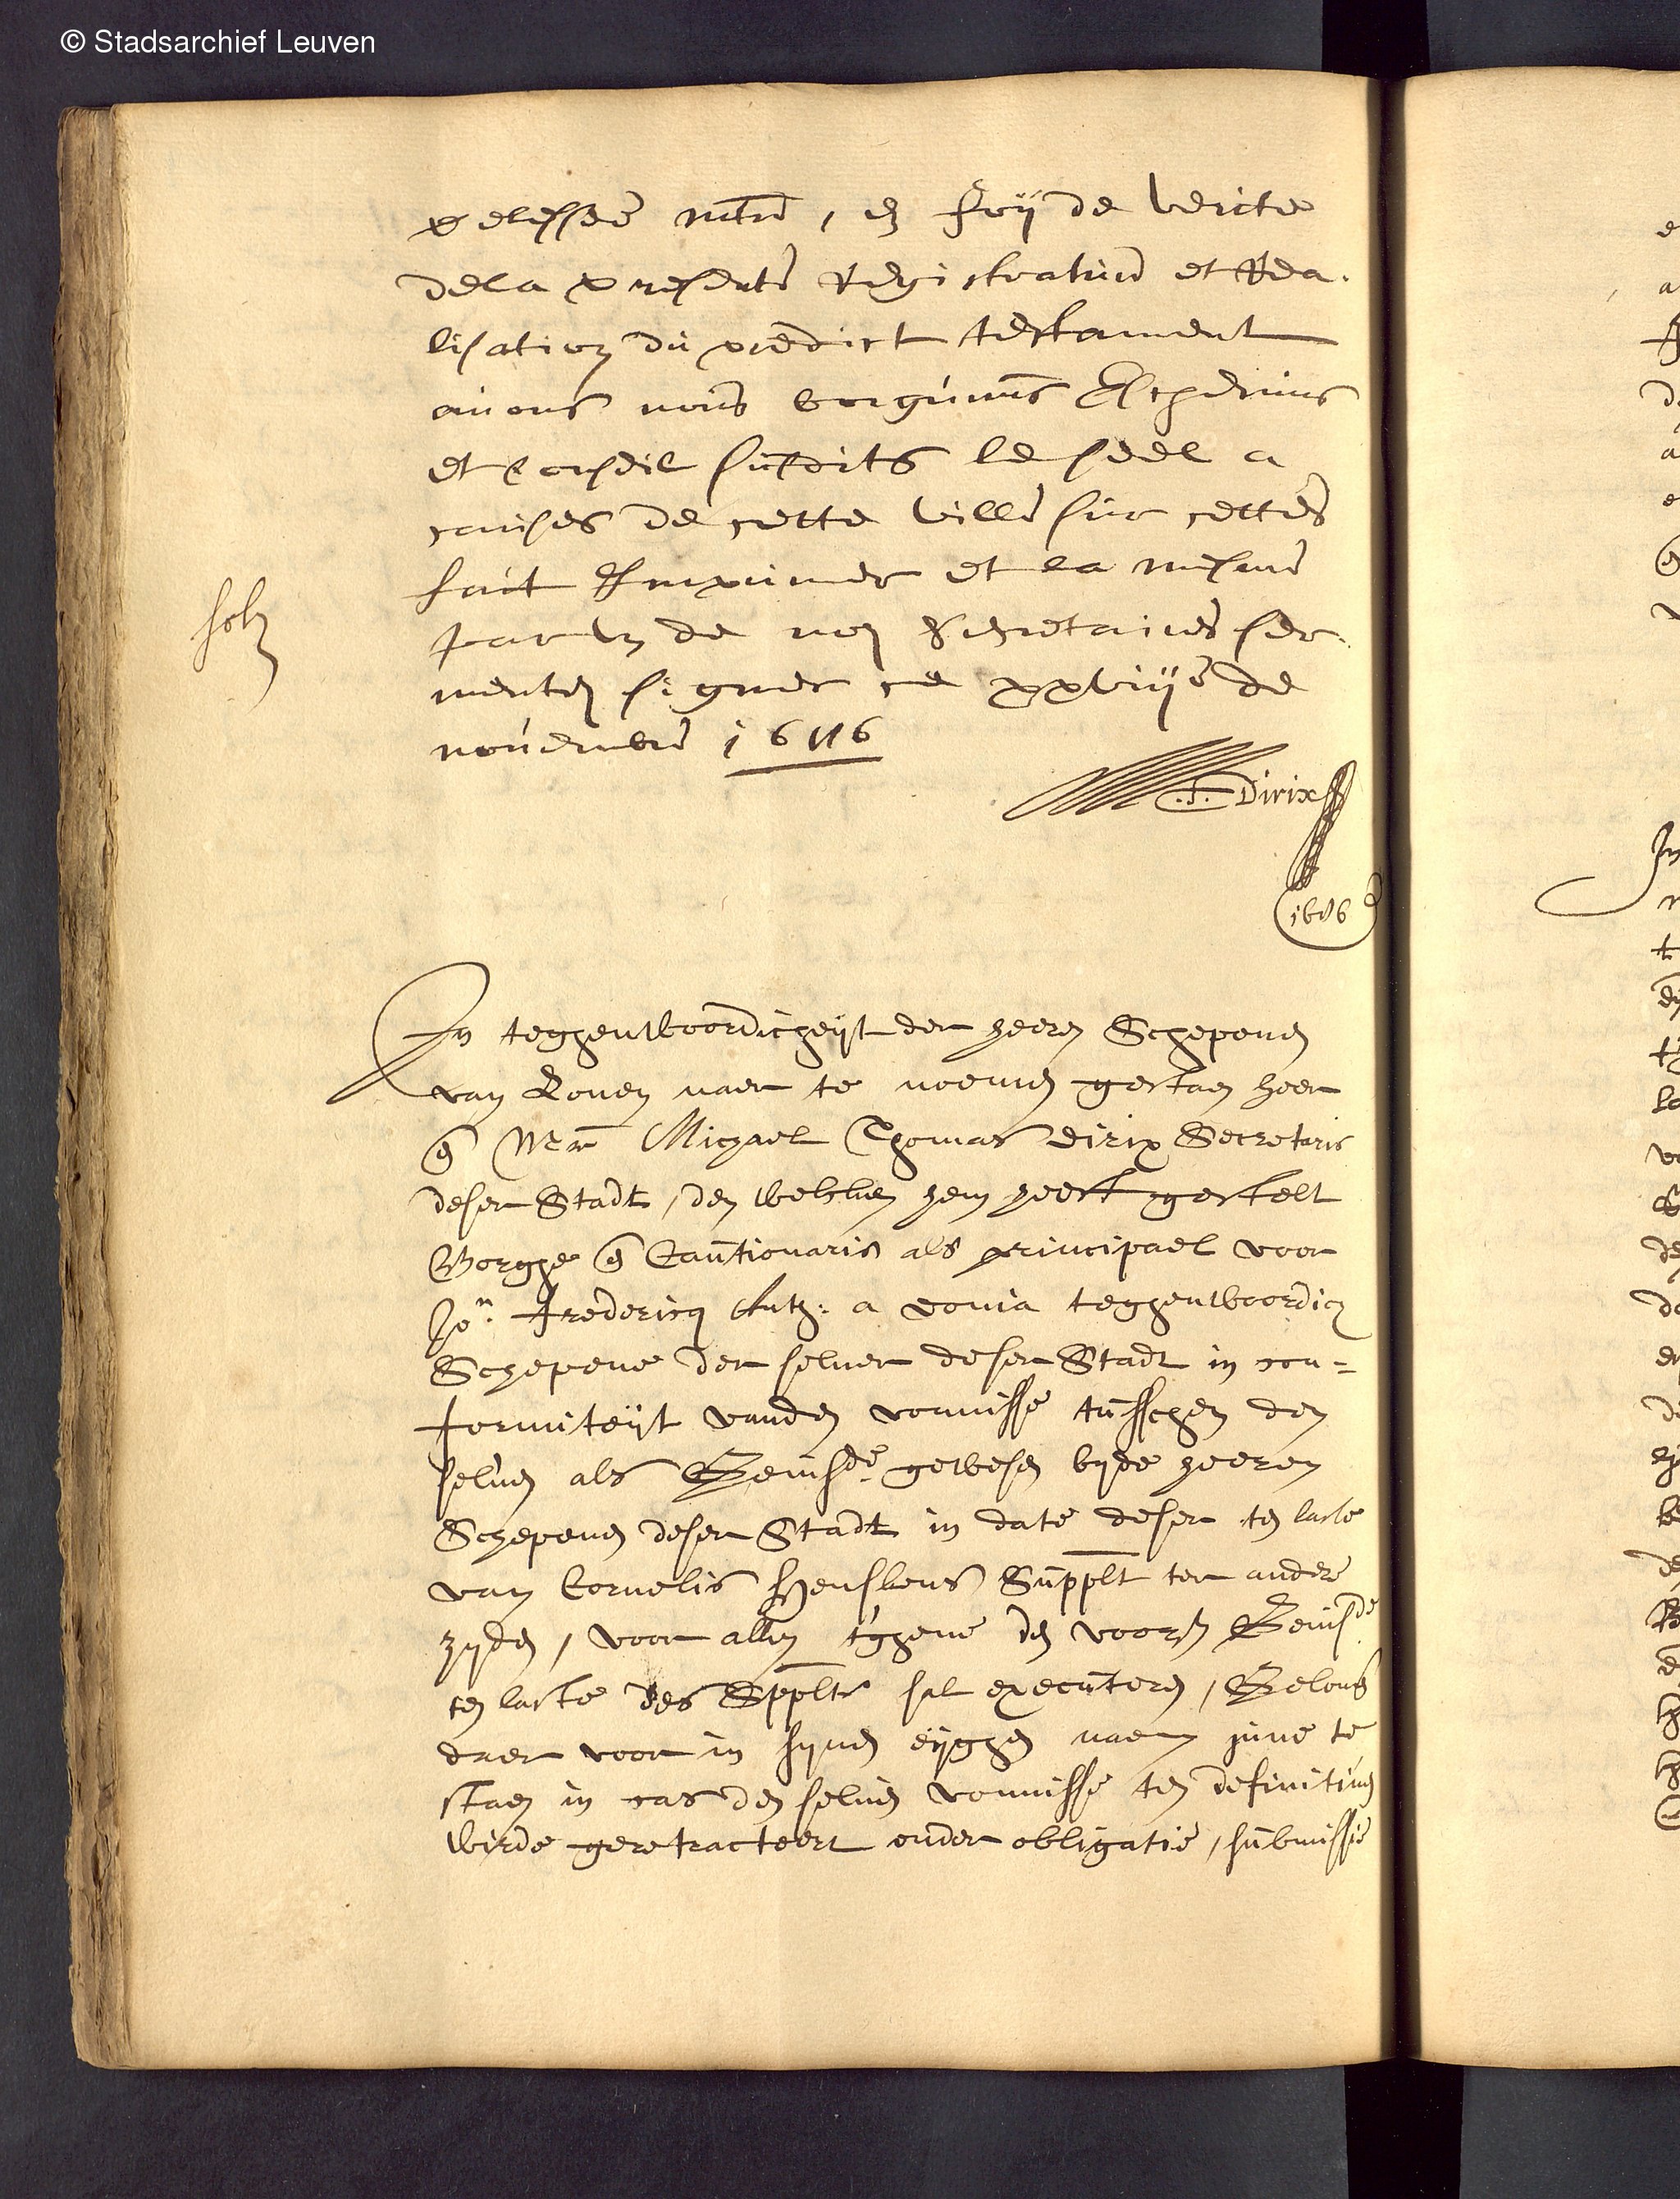 © Stadsarchief Leuven
en foÿ de verite
dela presente Registrature et Rea-
lisation du predict testament
auons nous borgúm̄rs Escheuins
et Conseil susdits le seel a
causes de cette ville sur cettes
fait Imprimer et la mesme
par vn de nos Secretaires ser-
mentez signer ce xxviije de
nouembre 1686
solt
Dirix
1686
In teghenwoordicheÿt der heeren Schepenen
van Loven naer te noemen gestaen heer
en Mr Michael Thomas Dirix Secretaris
deser Stadt, den welcken hem heeft gestelt
Borghe en Cautionaris als principael voor
Jor. Fredericq Anth: a Couia teghenwoordich
Schepene der selver deser Stadt in con-
formiteÿt vanden vonnisse tusschen den
selven als Gemsde gewesen byde heeren
Schepenen deser Stadt in date deser ten laste
van Cornelis Henskens Supplt ter andere
zyden, voor allen t'ghene den voors Gemsde
ten laste des Spplts sal executeren, Gelove
daer voor in synen eÿghen naem juve te
staen in cas den selven vonnisse ten definitiven
wirde geretracteert onder obligatie, submissie